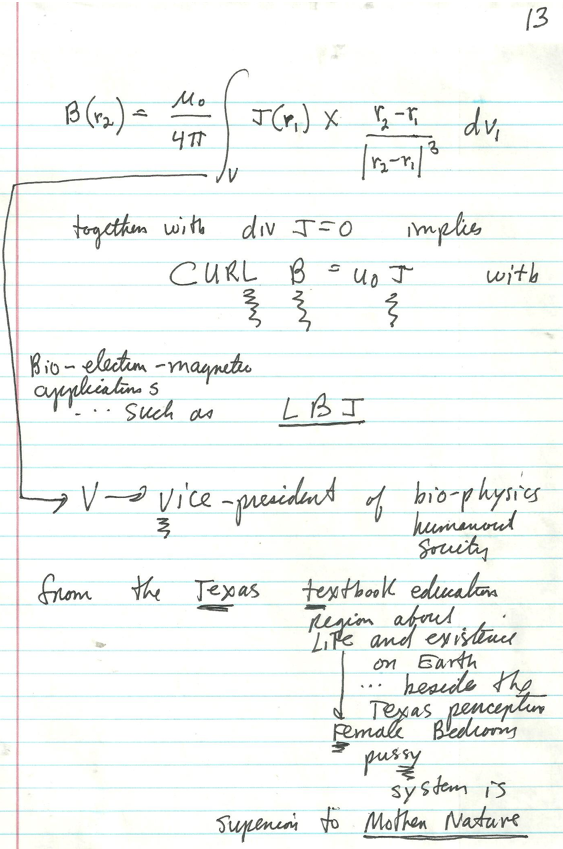 13
B(r₂) = μ₀/4π ∫_V J(r₁) × (r₂-r₁)/|r₂-r₁|³ dv₁
together with div J=0 implies
CURL B = u₀ J with
Bio-electron-magnetic
applications
... such as LBJ
V → Vice-president of bio-physics
humanoid
society
from the Texas textbook education
region about
LiFe and existence
on Earth
... beside the
Texas perception
Female Bedroom
pussy
system is
superior to Mother Nature